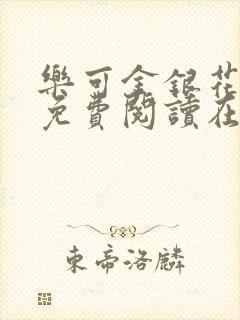 樂可金銀花
免費閱讀在
東帝洛麟